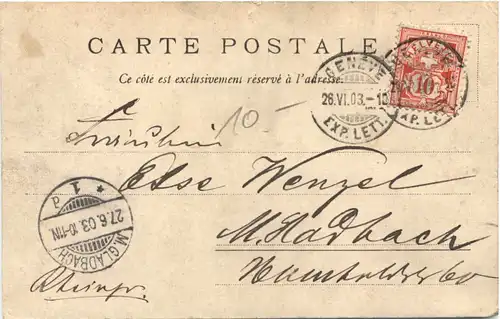 CARTE POSTALE
Ce côté est exclusivement réservé à l'adresse.
GENÈVE
26.VI.03.–10
EXP. LETT.
EXP. LETT.
10
10.–
Fräulein
Else Wenzel
M. Gladbach
Humboldstr 60
Rheinpr.
* 1 d
27.6.03. 10-11N.
M. GLADBACH